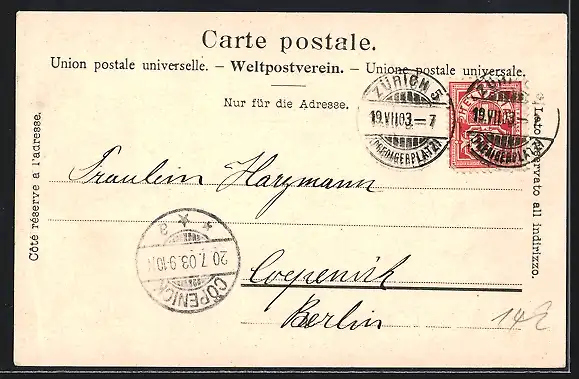 Carte postale.
Union postale universelle. – Weltpostverein. – Unione postale universale.
Nur für die Adresse.
Côté réservé à l'adresse.
Lato riservato all indirizzo.
ZÜRICH 5
19.VII.03.–7
(PREDIGERPLATZ)
ZÜRICH
19.VII.03.–
(PREDIGERPLATZ)
Fraulein Harzmann
20.7.03.9-10
CÖPENICK
Coepenick
Berlin